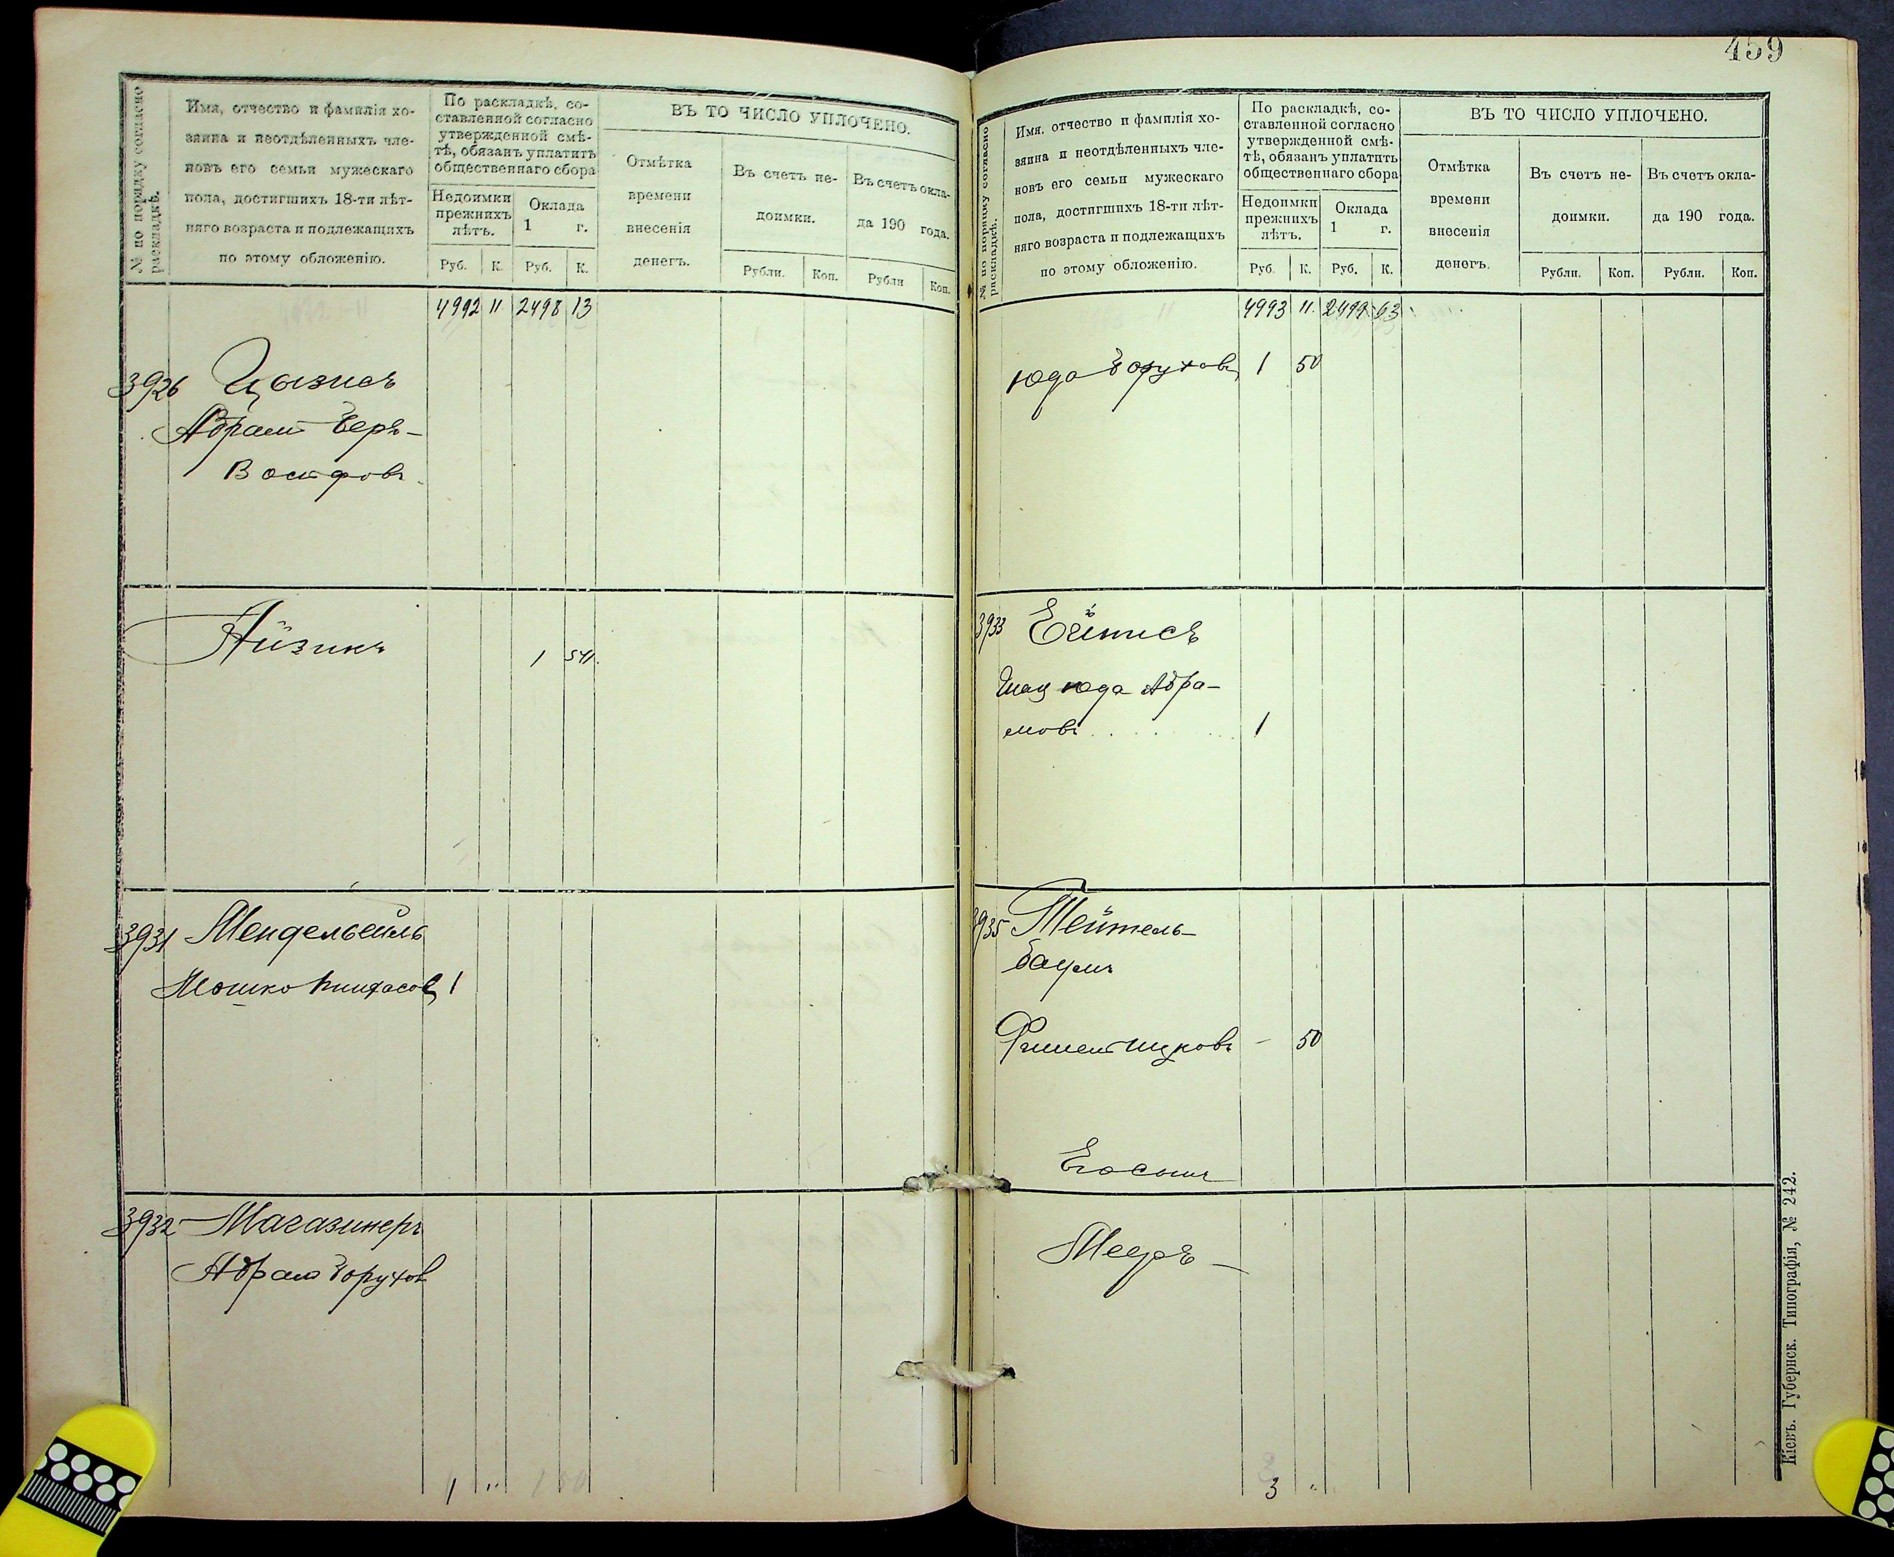 459
№ по порядку согласно раскладкѣ.
Имя, отчество и фамилія хо-
зяина и неотдѣленныхъ чле-
новъ его семьи мужескаго
пола, достигшихъ 18-ти лѣт-
няго возраста и подлежащихъ
по этому обложенію.
По раскладкѣ, со-
ставленной согласно
утвержденной смѣ-
тѣ, обязанъ уплатить
общественнаго сбора
Недоимки
прежнихъ
лѣтъ.
Оклада
1 г.
Руб. К. Руб. К.
ВЪ ТО ЧИСЛО УПЛОЧЕНО.
Отмѣтка
времени
внесенія
денегъ.
Въ счетъ не-
доимки.
Въ счетъ окла-
да 190 года.
Рубли. Коп. Рубли Коп.
4992 11 2498 13
3926 Цызисъ
Абрамъ Беръ-
Айзикъ 1 5
3931 Мендельвейль
Мошко Пинхасов 1
3932 Магазинеръ
Абрам Борухов
1 "
№ по порядку согласно раскладкѣ.
Имя, отчество и фамилія хо-
зяина и неотдѣленныхъ чле-
новъ его семьи мужескаго
пола, достигшихъ 18-ти лѣт-
няго возраста и подлежащихъ
по этому обложенію.
По раскладкѣ, со-
ставленной согласно
утвержденной смѣ-
тѣ, обязанъ уплатить
общественнаго сбора
Недоимки
прежнихъ
лѣтъ.
Оклада
1 г.
Руб. К. Руб. К.
ВЪ ТО ЧИСЛО УПЛОЧЕНО.
Отмѣтка
времени
внесенія
денегъ.
Въ счетъ не-
доимки.
Въ счетъ окла-
да 190 года.
Рубли. Коп. Рубли. Коп.
4993 11. 2499 63
Юда Борухов 1 50
3933
Юда Абра-
мовъ 1
3935 Тейтель-
баумъ
Ицковъ - 50
Его сынъ
Мееръ -
3 "
Кіевъ. Губернск. Типографія, № 242.